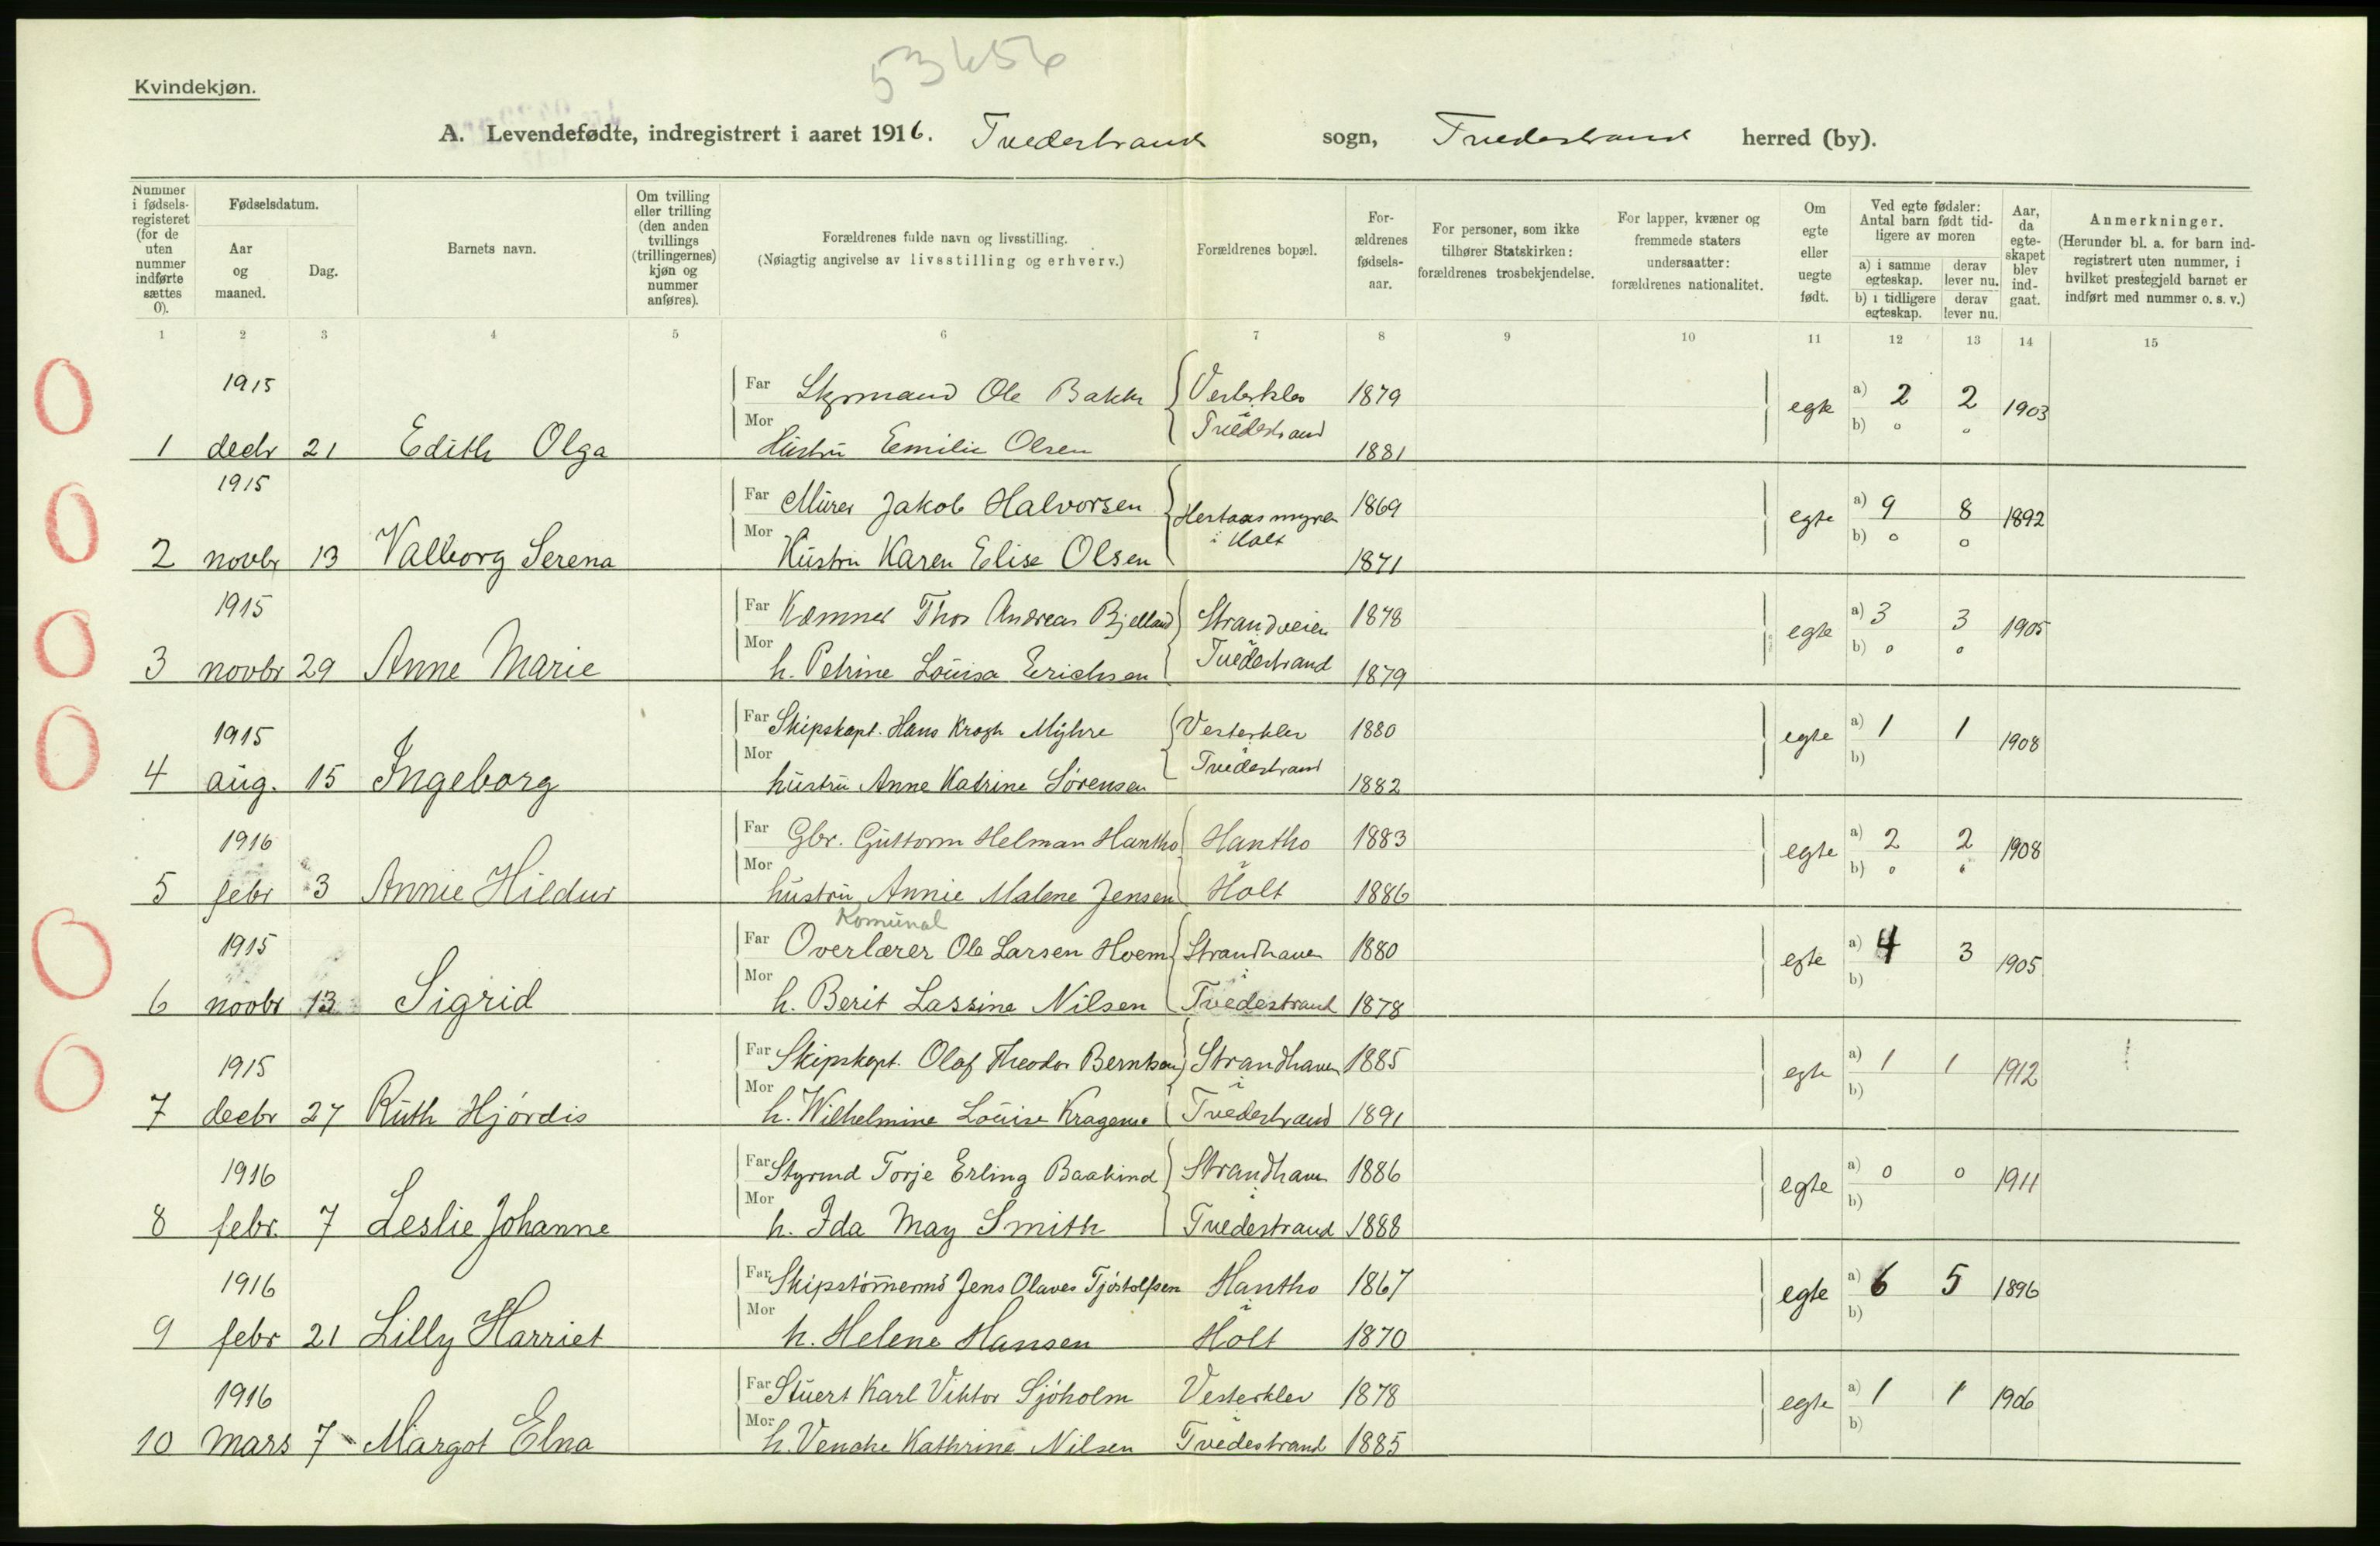 53656
Kvindekjøn.
A. Levendefødte, indregistrert i aaret 1916. Tvedestrand sogn, Tvedestrand herred (by).
Nummer i fødsels-registeret (for de uten nummer indførte sættes 0).
Fødselsdatum.
Aar og maaned.
Dag.
Barnets navn.
Om tvilling eller trilling (den anden tvillings (trillingernes) kjøn og nummer anføres).
Forældrenes fulde navn og livsstilling.
(Nøiagtig angivelse av livsstilling og erhverv.)
Forældrenes bopæl.
For-ældrenes fødsels-aar.
For personer, som ikke tilhører Statskirken: forældrenes trosbekjendelse.
For lapper, kvæner og fremmede staters undersaatter: forældrenes nationalitet.
Om egte eller uegte født.
Ved egte fødsler: Antal barn født tid-ligere av moren
a) i samme egteskap.
derav lever nu.
b) i tidligere egteskap.
derav lever nu.
Aar, da egte-skapet blev ind-gaat.
Anmerkninger.
(Herunder bl. a. for barn ind-registrert uten nummer, i hvilket prestegjeld barnet er indført med nummer o. s. v.)
1 2 3 4 5 6 7 8 9 10 11 12 13 14 15
1915 Far Styrmand Ole Bakke Vesterklev 1879 egte a) 2 2 1903
Mor i Tvedestrand b) 0 0
1 decbr 21 Edith Olga Hustru Emilie Olsen 1881
1915 Far Murer Jakob Halvorsen Hestaasmyren 1869 egte a) 9 8 1892
Mor i Holt b) 0 0
2 novbr 13 Valborg Serena Hustru Karen Elise Olsen 1871
1915 Far Kæmner Thor Andreas Bjelland Strandveien 1878 egte a) 3 3 1905
Mor i Tvedestrand b) 0 0
3 novbr 29 Anne Marie h. Petrine Louisa Erichsen 1879
1915 Far Skipskapt. Hans Krogh Myhre Vesterklev 1880 egte a) 1 1 1908
Mor i Tvedestrand b)
4 aug. 15 Ingeborg hustru Anne Katrine Sørensen 1882
1916 Far Gbr. Guttorm Helman Hantho Hantho 1883 egte a) 2 2 1908
Mor i b) 0 0
5 febr 3 Annie Hildur hustru Annie Malene Jensen Holt 1886
Komunal
1915 Far Overlærer Ole Larsen Hoem Strandhaven 1880 egte a) 4 3 1905
Mor i b)
6 novbr 13 Sigrid h. Berit Lassine Nilsen Tvedestrand 1878
1915 Far Skipskapt. Olaf Theodor Berntsen Strandhaven 1885 egte a) 1 1 1912
Mor i b)
7 decbr 27 Ruth Hjørdis h. Wilhelmine Louise Tvedestrand 1891
1916 Far Styrmd Torje Erling Baakind Strandhaven 1886 egte a) 0 0 1911
Mor i b)
8 febr. 7 Leslie Johanne h. Ida May Smith Tvedestrand 1888
1916 Far Skipstømermd Jens Olaves Tjøstolfsen Hantho 1867 egte a) 6 5 1896
Mor i b)
9 febr 21 Lilly Harriet h. Helene Hansen Holt 1870
1916 Far Stuert Karl Viktor Sjøholm Vesterklev 1878 egte a) 1 1 1906
Mor i b)
10 mars 7 Margot Elna h. Venche Kathrine Nilsen Tvedestrand 1885